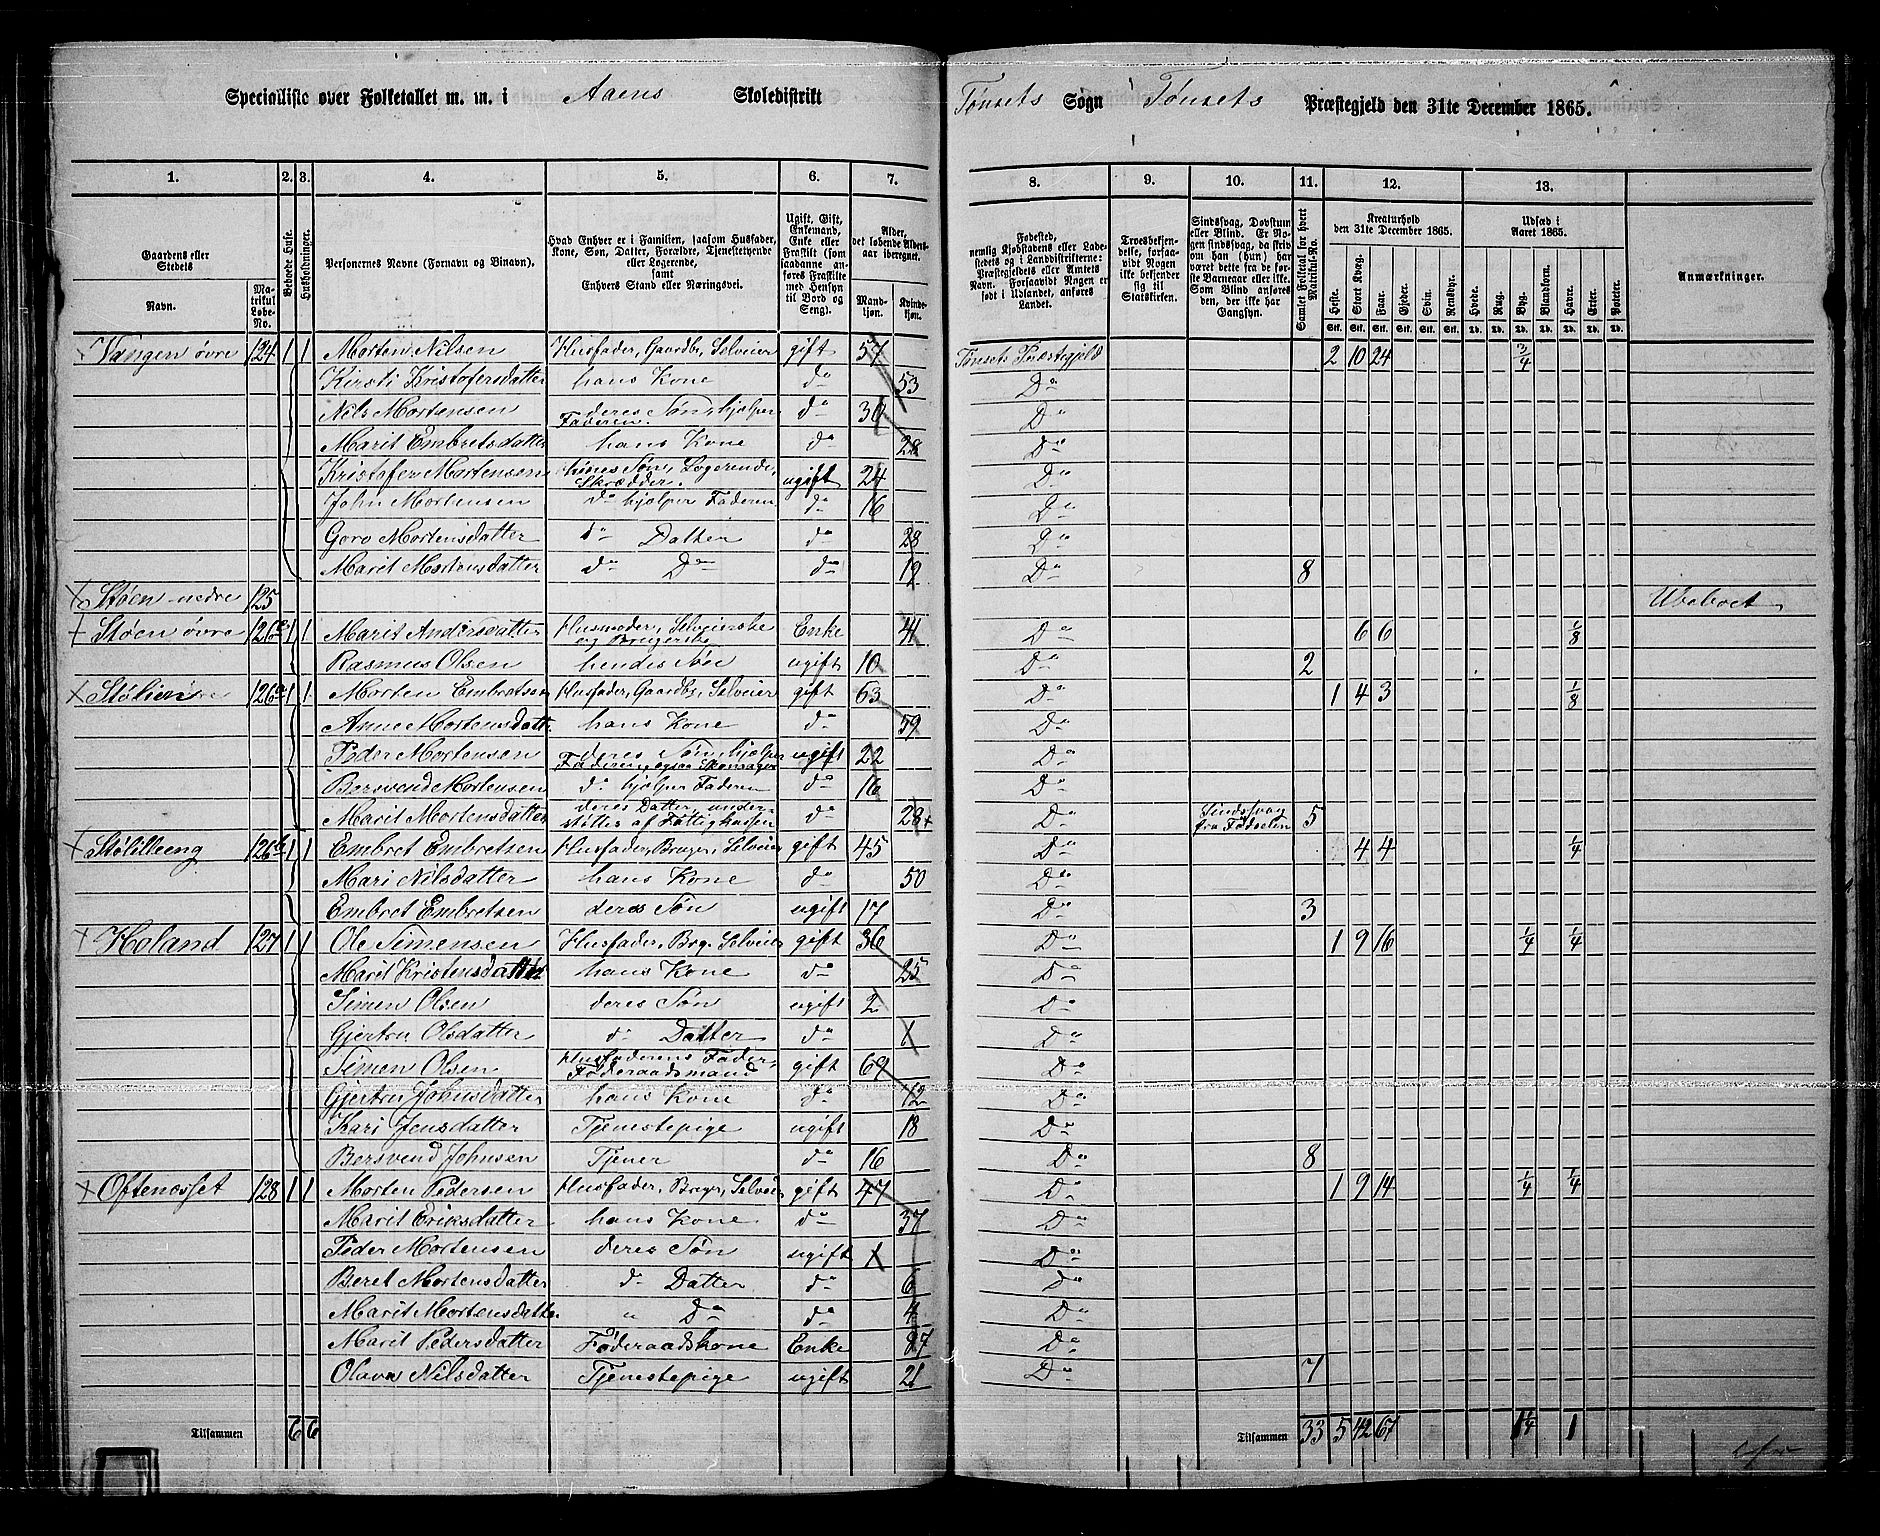 Specialliste over Folketallet m. m. i Aaens Skoledistrikt Tønsets Sogn i Tønsets Præstegjeld den 31te December 1865.
1. 2. 3. 4. 5. 6. 7. 8. 9. 10. 11. 12. 13.
Gaardens eller Stedets
Navn.
Matrikul Løbe-No.
Beboede Huse.
Husholdninger.
Personernes Navne (Fornavn og Binavn).
Hvad Enhver er i Familien, saasom Husfader, Kone, Søn, Datter, Forældre, Tjenestetyende eller Logerende, samt Enhvers Stand eller Næringsvei.
Ugift, Gift, Enkemand, Enke eller Fraskilt (som saadanne anføres Fraskilte med Hensyn til Bord og Seng).
Alder, det løbende Aldersaar iberegnet.
Mandkjøn. Kvindekjøn.
Fødested, nemlig Kjøbstadens eller Ladestedets og i Landdistrikterne: Præstegjeldets eller Amtets Navn. Forsaavidt Nogen er født i Udlandet, anføres Landet.
Troesbekjendelse, forsaavidt Nogen ikke bekjender sig til Statskirken.
Sindssvag, Døvstum eller Blind. Er Nogen sindssvag, da skriv om han (hun) har været dette fra de første Barneaar eller ikke. Som Blind anføres den, der ikke har Gangsyn.
Samlet Folketal for hvert Matrikul-No.
Kreaturhold den 31te December 1865.
Heste. Stort Kvæg. Faar. Gjeder. Svin. Rensdyr.
Stk. Stk. Stk. Stk. Stk. Stk.
Udsæd i Aaret 1865.
Hvede. Rug. Byg. Blandkorn. Havre. Erter. Poteter.
Td. Td. Td. Td. Td. Td. Td.
Anmærkninger.
Vangen øvre 124 1 1 Morten Nilsen Husfader, Gaardb, Selveier gift 57 Tønsets Præstegjeld 2 10 24 3/4
Kirsti Kristofersdatter hans Kone do 53 Do
Nils Mortensen deres Søn, hjælper Faderen. do 30 Do
Marit Embretsdatter hans Kone do 28 Do
Kristofer Mortensen Søn, Logerende, Skrædder. ugift 24 Do
John Mortensen do hjælper Faderen do 16 Do
Goro Mortensdatter do Datter do 28 Do
Marit Mortensdatter do Do do 12 Do 8
Støen nedre 125 Ubeboet
Støen øvre 126 1 1 Marit Andersdatter Husmoder, Selveierske og Brugerske Enke 41 Do 6 6 1/8
Rasmus Olsen hendes Søn ugift 10 Do 2
126a 1 1 Morten Embretsen Husfader, Gaardb, Selveier gift 63 Do 1 4 3 1/8
Anne Mortensdatt. hans Kone do 59 Do
Peder Mortensen deres Søn, hjælper Faderen, ogsaa Skomager ugift 22 Do
Bersvend Mortensen do hjælper Faderen do 16 Do
Marit Mortensdatter deres Datter, understøttes af Fattigkassen do 28+ Do Sindssvag fra Fødselen 5
Stølilleeng 126b 1 1 Embret Embretsen Husfader, Bruger, Selveier gift 45 Do 4 4 1/4
Mari Nilsdatter hans Kone do 50 Do
Embret Embretsen deres Søn ugift 17 Do 3
Holand 127 1 1 Ole Simensen Husfader, Brg. Selveier gift 36 Do 1 9 16 1/4 1/4
Marit Kristensdatter hans Kone do 25 Do
Simen Olsen deres Søn ugift 2 Do
Gjertru Olsdatter do Datter do 1 Do
Simen Olsen Husfaderens Fader, Føderaadsmand gift 69 Do
Gjertru Johnsdatter hans Kone do Do
Kari Jensdatter Tjenestepige ugift 18 Do
Bersvend Johnsen Tjener do 16 Do 8
Oftenæsset 128 1 1 Morten Pedersen Husfader, Bruger, Selveier gift 47 Do 1 9 14 1/4 1/4
Marit Eriksdatter hans Kone do 37 Do
Peder Mortensen deres Søn ugift 1 Do
Beret Mortensdatter do Datter do 6 Do
Marit Mortensdatter " Do do 4 Do
Marit Pedersdatter Føderaadskone Enke Do
Olava Nilsdatter Tjenestepige ugift 21 Do 7
Tilsammen 6 6 Tilsammen 33 5 42 67 1 1/4 1